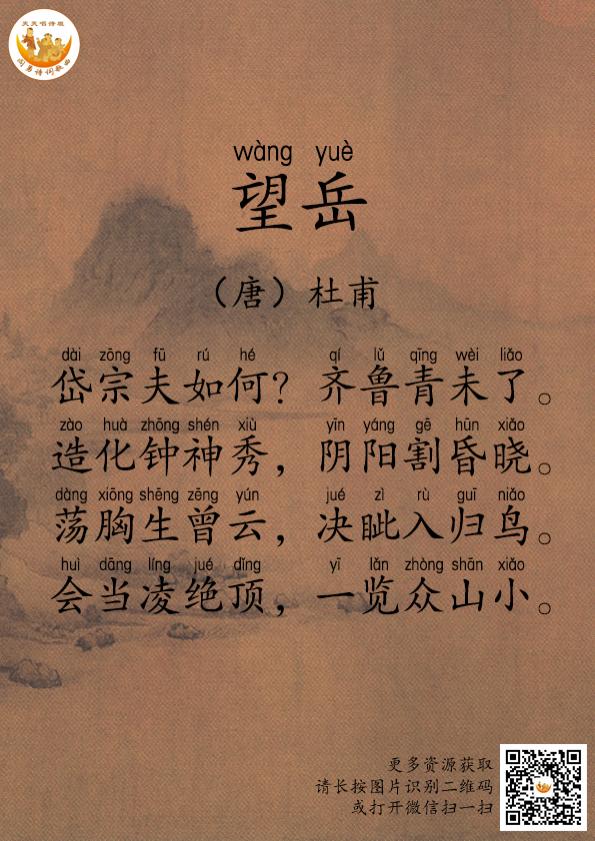 天天唱诗班
闫勇诗词歌曲
wàng yuè
望岳
（唐）杜甫
dài zōng fū rú hé qí lǔ qīng wèi liǎo
岱宗夫如何？齐鲁青未了。
zào huà zhōng shén xiù yīn yáng gē hūn xiǎo
造化钟神秀，阴阳割昏晓。
dàng xiōng shēng zēng yún jué zì rù guī niǎo
荡胸生曾云，决眦入归鸟。
huì dāng líng jué dǐng yī lǎn zhòng shān xiǎo
会当凌绝顶，一览众山小。
更多资源获取
请长按图片识别二维码
或打开微信扫一扫